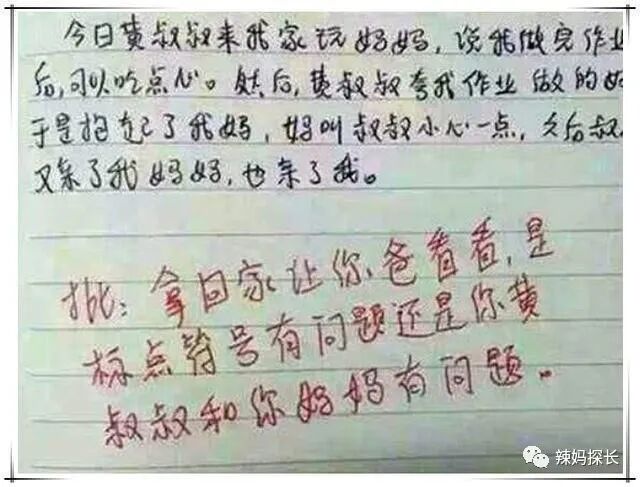 今日黄叔叔来我家玩妈妈,说我做完作业
后,可以吃点心。然后,黄叔叔夸我作业做的好
于是抱起了我妈,妈叫叔叔小心一点,之后叔
又亲了我妈妈,也亲了我。
批:拿回家让你爸看看,是
标点符号有问题还是你黄
叔叔和你妈妈有问题。
辣妈探长